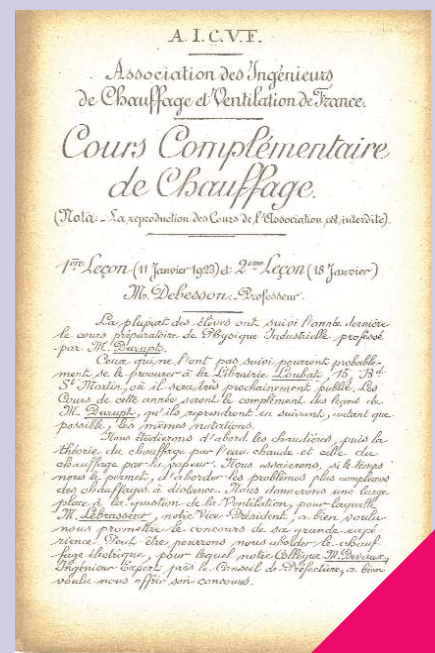 A.I.C.V.F.
Association des Ingénieurs
de Chauffage et Ventilation de France.
Cours Complémentaire
de Chauffage.
(Nota.- La reproduction des Cours de l'Association est interdite).
1ère Leçon (11 Janvier 1923) et 2ème Leçon (18 Janvier)
M. Debesson.- Professeur.
La plupart des élèves ont suivi l'année dernière
le cours préparatoire de Physique Industrielle professé
par M. Durupt.
Ceux qui ne l'ont pas suivi pourront probable-
ment se le procurer à la Librairie Loubat, 15, Bd
St Martin, où il sera très prochainement publié. Les
Cours de cette année seront le complément des leçons de
M. Durupt, qu'ils reprendront en suivant, autant que
possible, les mêmes notations.
Nous étudierons d'abord les chaudières, puis la
théorie du chauffage par l'eau chaude et celle du
chauffage par la vapeur. Nous essaierons, si le temps
nous le permet, d'aborder les problèmes plus complexes
des chauffages à distance. Nous donnerons une large
place à la question de la Ventilation, pour laquelle
M. Lebrasseur, notre Vice-Président, a bien voulu
nous promettre le concours de sa grande expé
rience. Peut être pourrons nous aborder le chauf-
fage électrique, pour lequel notre Collègue M. Devaux,
Ingénieur Expert près le Conseil de Préfecture, a bien
voulu nous offrir son concours.